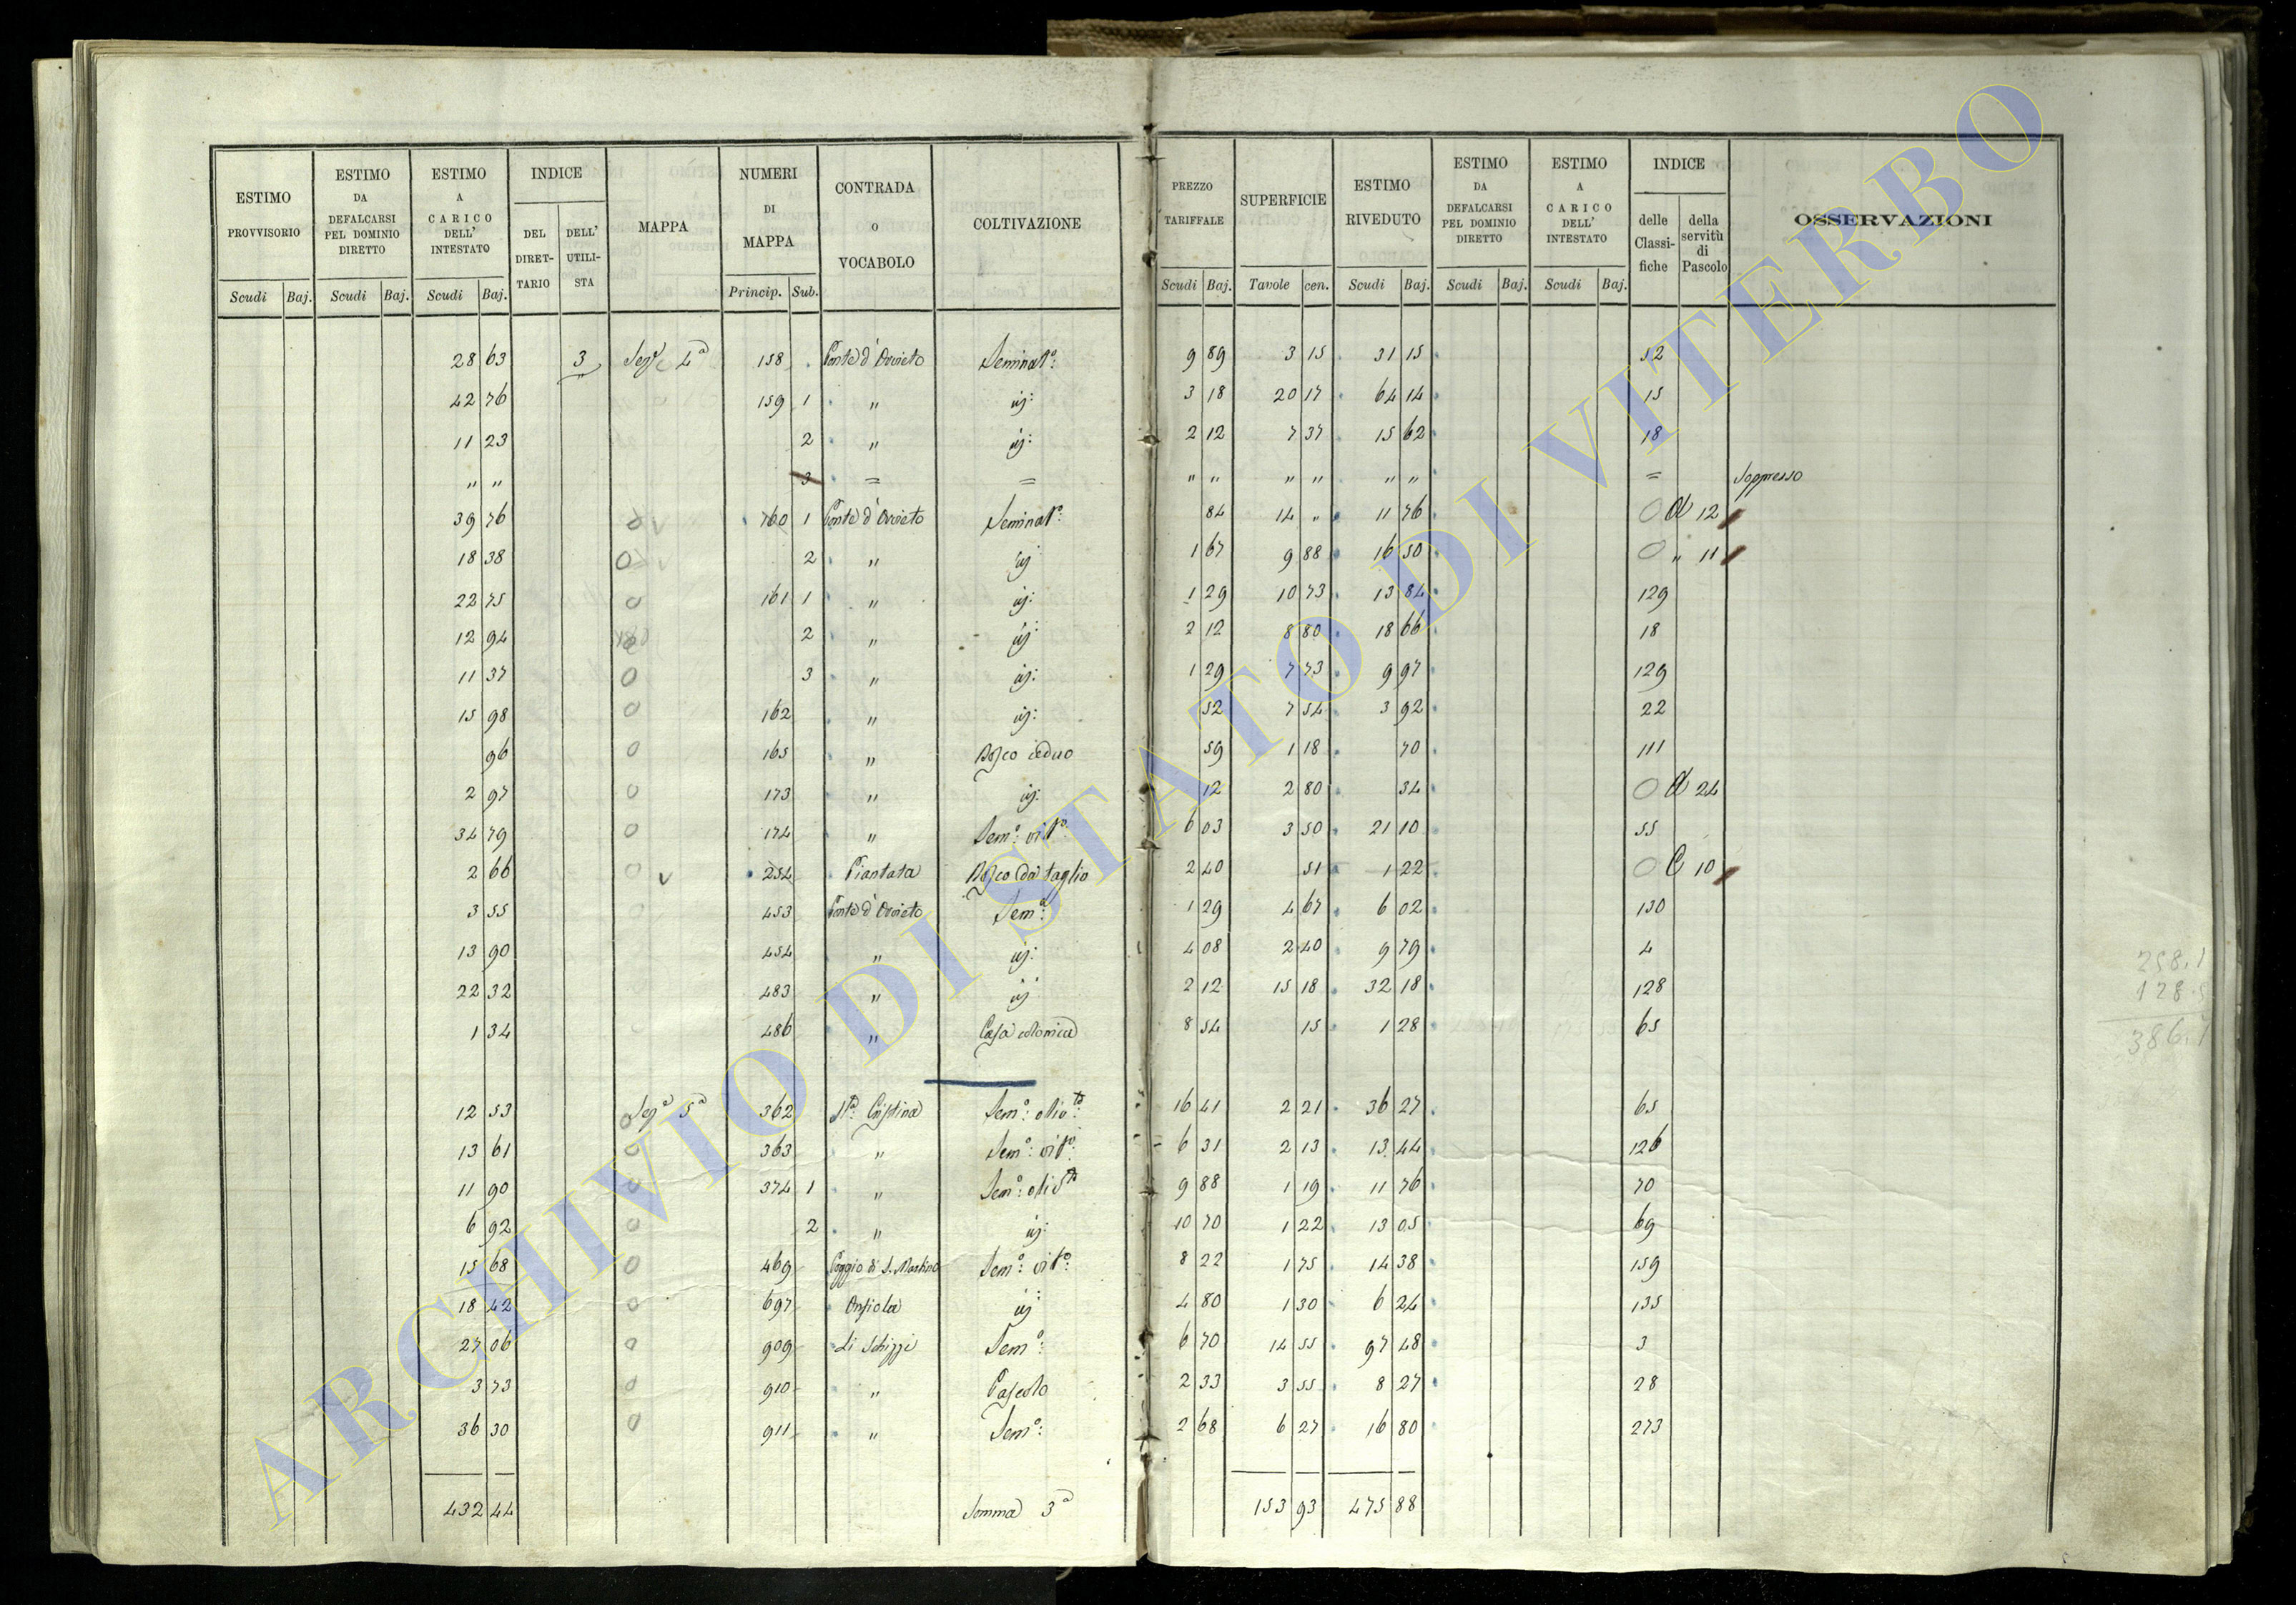 ESTIMO PROVVISORIO | ESTIMO DA DEFALCARSI PEL DOMINIO DIRETTO | ESTIMO A CARICO DELL' INTESTATO | INDICE | MAPPA | NUMERI DI MAPPA | CONTRADA o VOCABOLO | COLTIVAZIONE | PREZZO TARIFFALE | SUPERFICIE | ESTIMO RIVEDUTO | ESTIMO DA DEFALCARSI PEL DOMINIO DIRETTO | ESTIMO A CARICO DELL' INTESTATO | INDICE | OSSERVAZIONI
DEL DIRETTARIO | DELL' UTILISTA | delle Classifiche | della servitù di Pascolo
Scudi | Baj. | Scudi | Baj. | Scudi | Baj. | Princip. | Sub. | Scudi | Baj. | Tavole | cen. | Scudi | Baj. | Scudi | Baj. | Scudi | Baj.
28 63 | 3 | Sezᵉ 4ª | 158 | Ponte d'Orvieto | Seminatº: | 9 89 | 3 15 | 31 15 | 52
42 76 | 159 1 | " | id: | 3 18 | 20 17 | 64 14 | 15
11 23 | 2 | " | id: | 2 12 | 7 37 | 15 62 | 18
" " | 3 | = | = | " " | " " | " " | = | Soppresso
39 76 | 160 1 | Ponte d'Orvieto | Seminatº: | 84 | 14 " | 11 76 | 0 A 12
18 38 | 0 | 2 | " | id | 1 67 | 9 88 | 16 50 | 0 " 11
22 75 | 0 | 161 1 | " | id: | 1 29 | 10 73 | 13 84 | 129
12 94 | 2 | " | id: | 2 12 | 8 80 | 18 66 | 18
11 37 | 0 | 3 | " | id: | 1 29 | 7 73 | 9 97 | 129
15 98 | 0 | 162 | " | id: | 52 | 7 54 | 3 92 | 22
96 | 0 | 165 | " | Bosco ceduo | 59 | 1 18 | 70 | 111
2 97 | 0 | 173 | " | id: | 12 | 2 80 | 34 | 0 A 24
34 79 | 0 | 174 | " | Semº: vitº: | 6 03 | 3 50 | 21 10 | 55
2 66 | 0 v | 254 | Piantata | Bosco da taglio | 2 40 | 51 | 1 22 | 0 C 10
3 55 | 453 | Ponte d'Orvieto | Semº: | 1 29 | 4 67 | 6 02 | 130
13 90 | 454 | " | id: | 4 08 | 2 40 | 9 79 | 4
22 32 | 483 | " | id | 2 12 | 15 18 | 32 18 | 128
1 34 | 486 | " | Casa colonica | 8 54 | 15 | 1 28 | 65
12 53 | 0 Sezᵉ 5ª | 362 | Sᵗᵃ: Cristina | Semº: olivᵗᵒ: | 16 41 | 2 21 | 36 27 | 65
13 61 | 0 | 363 | " | Semº: vitº: | 6 31 | 2 13 | 13 44 | 126
11 90 | 0 | 374 1 | " | Semº: olivᵗᵒ | 9 88 | 1 19 | 11 76 | 70
6 92 | 0 | 2 | " | id: | 10 70 | 1 22 | 13 05 | 69
15 68 | 0 | 469 | Poggio di S. Martino | Semº: vitº: | 8 22 | 1 75 | 14 38 | 159
18 42 | 0 | 697 | id | 4 80 | 1 30 | 6 24 | 135
27 06 | 0 | 909 | Li Schizzi | Semº: | 6 70 | 14 55 | 97 48 | 3
3 73 | 0 | 910 | " | Pascolo | 2 33 | 3 55 | 8 27 | 28
36 30 | 0 | 911 | " | Semº: | 2 68 | 6 27 | 16 80 | 273
432 44 | Somma 3ª | 153 93 | 475 88
ARCHIVIO DI STATO DI VITERBO